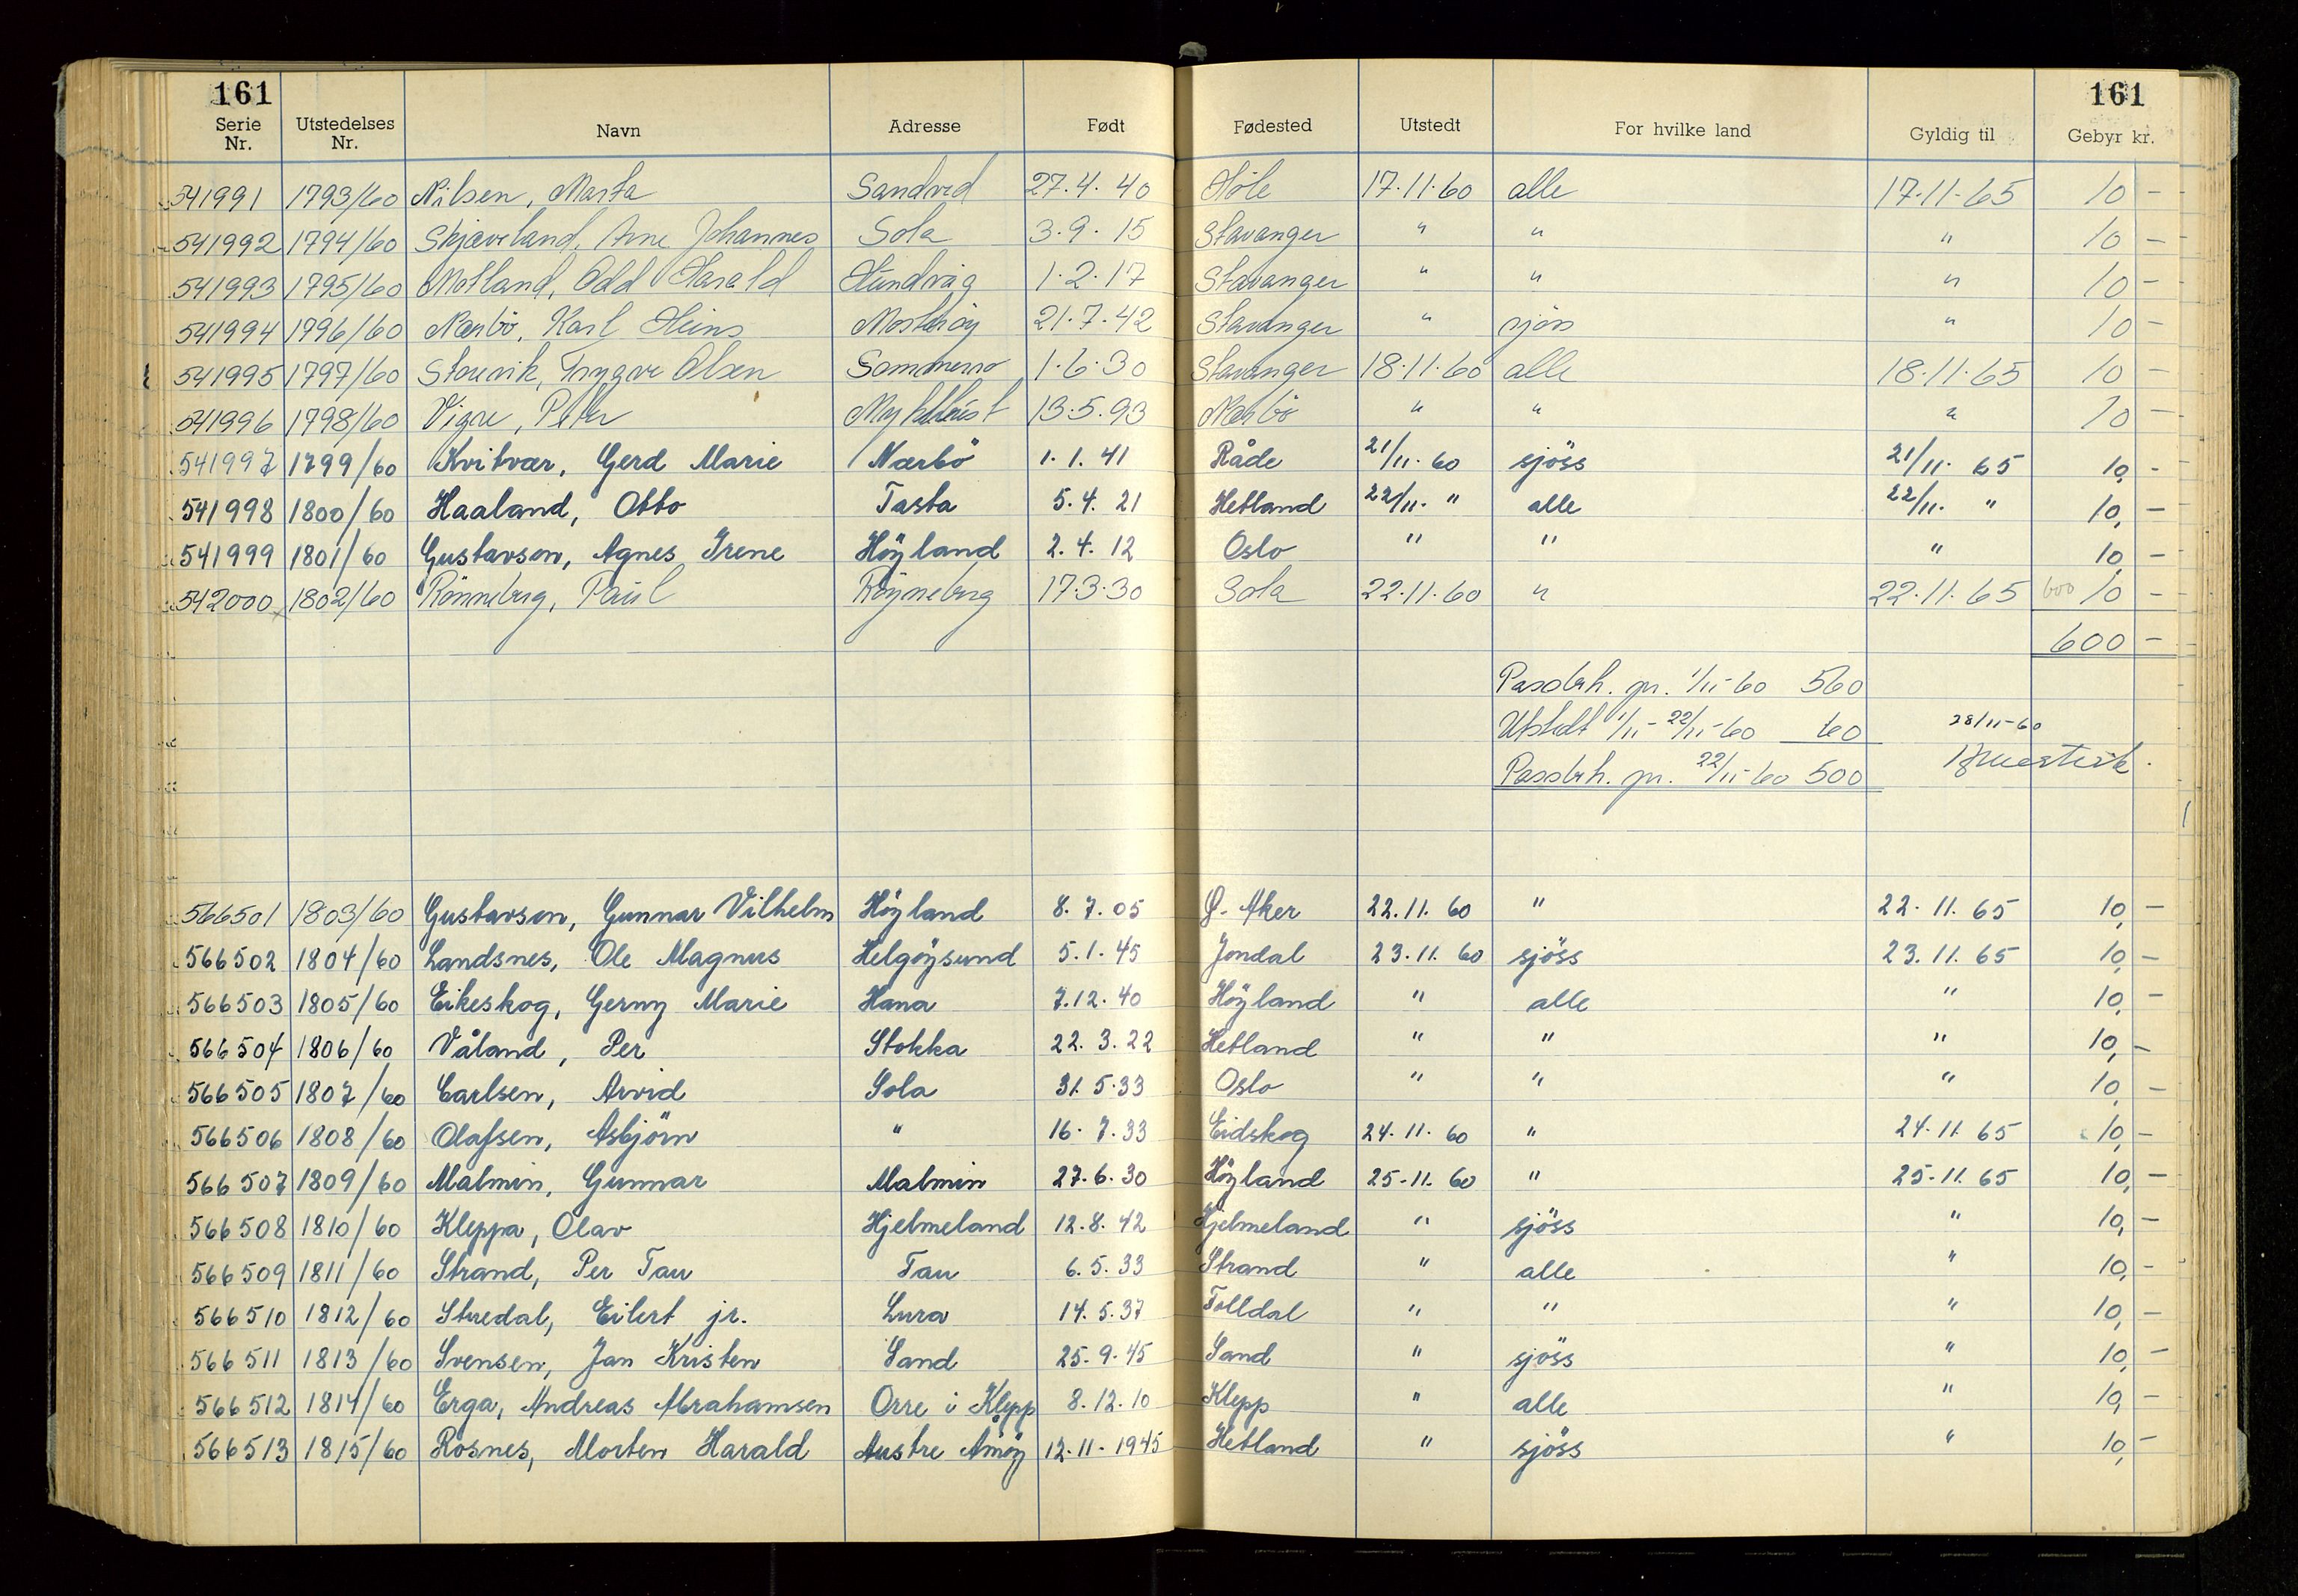 161 161
Serie Nr. Utstedelses Nr. Navn Adresse Født Fødested Utstedt For hvilke land Gyldig til Gebyr kr.
541991 1793/60 Nilsen, Marta Sandved 27.4.40 Høle 17.11.60 alle 17.11.65 10 -
541992 1794/60 Skjæveland, Arne Johannes Sola 3.9.15 Stavanger " " " 10 -
541993 1795/60 Motland, Odd Harald Hundvåg 1.2.17 Stavanger " " " 10 -
541994 1796/60 Nærbö, Karl Heins Mosteröy 21.7.42 Stavanger " sjöss " 10 -
541995 1797/60 Trygve Olsen 1.6.30 Stavanger 18.11.60 alle 18.11.65 10 -
541996 1798/60 Vigre, Peter 13.5.93 Nærbö " " " 10 -
541997 1799/60 Kvitvær, Gerd Marie Nærbö 1.1.41 Råde 21/11.60 sjöss 21/11.65 10, -
541998 1800/60 Haaland, Otto Tasta 5.4.21 Hetland 22/11. " alle 22/11. " 10, -
541999 1801/60 Gustavson, Agnes Irene Höyland 2.4.12 Oslo " " " 10, -
542000 1802/60 Rönneberg, Paul Röyneberg 17.3.30 Sola 22.11.60 " 22.11.65 600 10 -
600 -
Passbeh. pr. 1/11-60 560
Utstedt 1/11-22/11-60 60 28/11-60
Passbeh. pr. 22/11-60 500
566501 1803/60 Gustavson, Gunnar Vilhelm Höyland 8.7.05 Ø. Aker 22.11.60 " 22.11.65 10, -
566502 1804/60 Landsnes, Ole Magnus Helgöysund 5.1.45 Jondal 23.11.60 sjöss 23.11.65 10, -
566503 1805/60 Eikeskog, Gerny Marie Hana 7.12.40 Höyland " alle " 10, -
566504 1806/60 Våland, Per Stokka 22.3.22 Hetland " " " 10, -
566505 1807/60 Carlsen, Arvid Sola 31.5.33 Oslo " " " 10, -
566506 1808/60 Olafsen, Asbjörn " 16.7.33 Eidskog 24.11.60 " 24.11.65 10, -
566507 1809/60 Malmin, Gunnar Malmin 27.6.30 Höyland 25.11.60 " 25.11.65 10, -
566508 1810/60 Kleppa, Olav Hjelmeland 12.8.42 Hjelmeland " sjöss " 10, -
566509 1811/60 Strand, Per Tau Tau 6.5.33 Strand " alle " 10, -
566510 1812/60 Stredal, Eilert jr. Lura 14.5.37 Folldal " " " 10, -
566511 1813/60 Svensen, Jan Kristen Sand 25.9.45 Sand " sjöss " 10, -
566512 1814/60 Erga, Andreas Abrahamsen Orre i Klepp 8.12.10 Klepp " alle " 10, -
566513 1815/60 Rosnes, Morten Harald Austre Åmöy 12.11.1945 Hetland " sjöss " 10, -